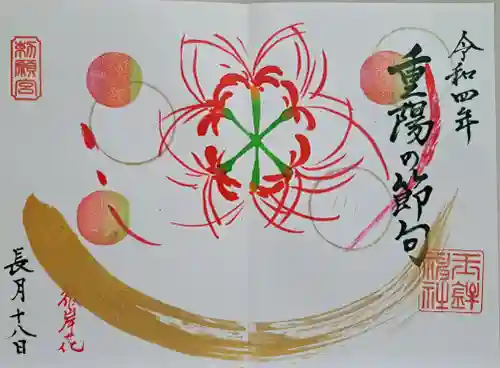 令和四年
重陽の節句
玉鉾
神社
勅願宮
長月十八日
彼岸花